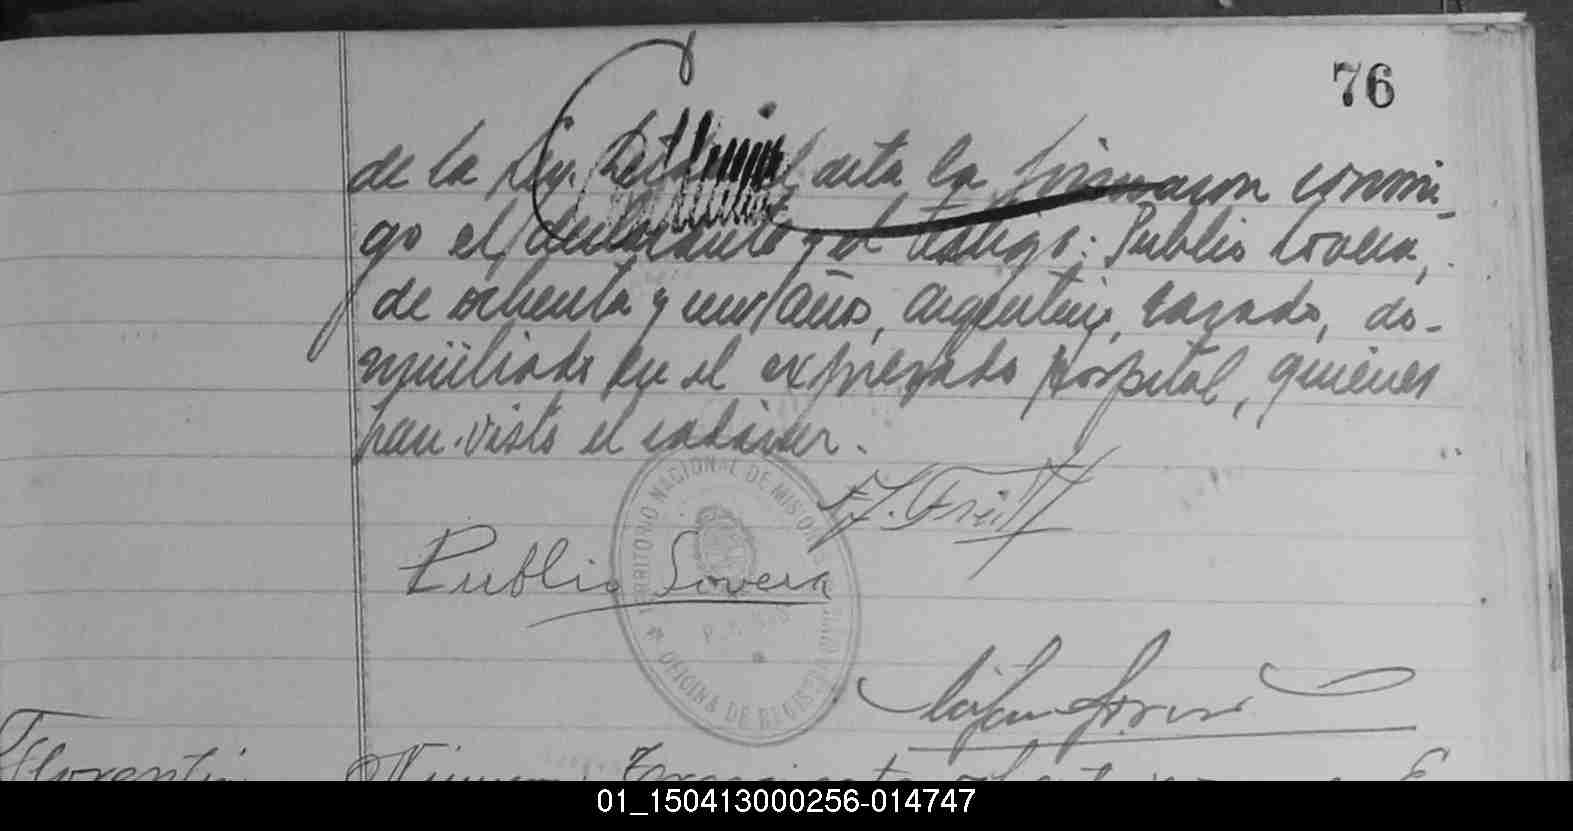 76
de la ley. Leída el acta la firmaron conmi-
go el declarante y el testigo: Publio Lovera,
de ochenta y un años, argentino, casado, do-
miciliado en el expresado hospital, quienes
han visto el cadáver.
TERRITORIO NACIONAL DE MISIONES
Publio Lovera
OFICINA DE REGISTRO
Florentin
Número Trescientos
01_150413000256-014747